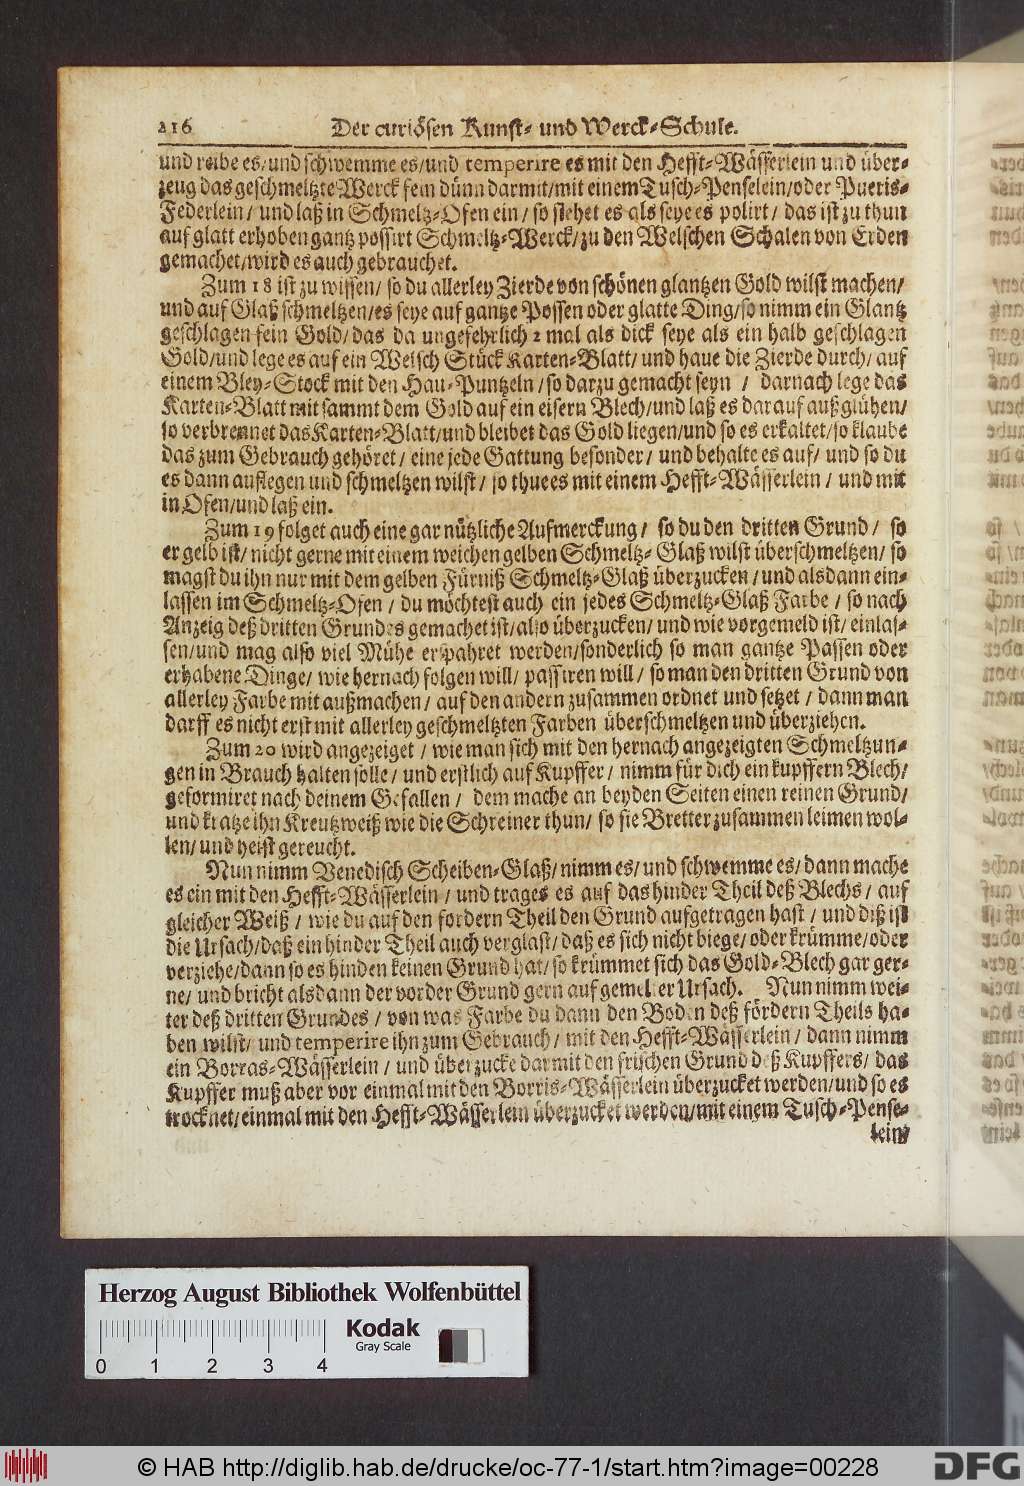 216 Der curiösen Kunst- und Werck-Schule.
und reibe es/und schwemme es/und temperire es mit den Hefft-Wässerlein und über-
zeug das geschmeltzte Werck fein dünn darmit/mit einem Tusch-Penselein/oder Pueris-
Federlein / und laß in Schmeltz-Ofen ein / so stehet es als seye es polirt / das ist zu thun
auf glatt erhoben gantz possirt Schmeltz-Werck/zu den Welschen Schalen von Erden
gemachet/wird es auch gebrauchet.
Zum 18 ist zu wissen/ so du allerley Zierde von schönen glantzen Gold wilst machen/
und auf Glaß schmeltzen/es seye auf gantze Possen oder glatte Ding/so nimm ein Glantz
geschlagen fein Gold/das da ungefehrlich 2 mal als dick seye als ein halb geschlagen
Gold/und lege es auf ein Welsch Stück Karten-Blatt/ und haue die Zierde durch/ auf
einem Bley-Stock mit den Hau-Puntzeln /so darzu gemacht seyn / darnach lege das
Karten-Blatt mit sammt dem Gold auf ein eisern Blech/und laß es darauf außglühen/
so verbrennet das Karten-Blatt/und bleibet das Gold liegen/und so es erkaltet/so klaube
das zum Gebrauch gehöret / eine jede Gattung besonder/ und behalte es auf/ und so du
es dann auflegen und schmeltzen wilst/ so thue es mit einem Hefft-Wässerlein / und mit
in Ofen/und laß ein.
Zum 19 folget auch eine gar nützliche Aufmerckung / so du den dritten Grund / so
er gelb ist/ nicht gerne mit einem weichen gelben Schmeltz-Glaß wilst überschmeltzen/ so
magst du ihn nur mit dem gelben Fürniß Schmeltz-Glaß überzucken / und alsdann ein-
lassen im Schmeltz-Ofen / du möchtest auch ein jedes Schmeltz-Glaß Farbe / so nach
Anzeig deß dritten Grundes gemachet ist/also überzucken/ und wie vorgemeld ist/ einlas-
sen/und mag also viel Mühe erspahret werden/sonderlich so man gantze Passen oder
erhabene Dinge/ wie hernach folgen will/ passiren will / so man den dritten Grund von
allerley Farbe mit außmachen / auf den andern zusammen ordnet und setzet / dann man
darff es nicht erst mit allerley geschmeltzten Farben überschmeltzen und überziehen.
Zum 20 wird angezeiget / wie man sich mit den hernach angezeigten Schmeltzun-
gen in Brauch halten solle / und erstlich auf Kupffer / nimm für dich ein kupffern Blech/
geformiret nach deinem Gefallen / dem mache an beyden Seiten einen reinen Grund/
und kratze ihn Kreutzweiß wie die Schreiner thun/ so sie Bretter zusammen leimen wol-
len/ und heist gereucht.
Nun nimm Venedisch Scheiben-Glaß/ nimm es/ und schwemme es/ dann mache
es ein mit den Hefft-Wässerlein / und trages es auf das hinder Theil deß Blechs / auf
gleicher Weiß / wie du auf den fordern Theil den Grund aufgetragen hast / und diß ist
die Ursach/daß ein hinder Theil auch verglast/ daß es sich nicht biege/ oder krümme/oder
verziehe/dann so es hinden keinen Grund hat/ so krümmet sich das Gold-Blech gar ger-
ne/ und bricht alsdann der vorder Grund gern auf gemelter Ursach. Nun nimm wei-
ter deß dritten Grundes / von was Farbe du dann den Boden deß fördern Theils ha-
ben wilst/ und temperire ihn zum Gebrauch / mit den Hefft-Wässerlein / dann nimm
ein Borras-Wässerlein / und überzucke darmit den frischen Grund deß Kupffers/ das
Kupffer muß aber vor einmal mit den Borris-Wässerlein überzucket werden/und so es
trocknet/einmal mit den Hefft-Wässerlein überzucket werden/mit einem Tusch-Pense-
lein/
Herzog August Bibliothek Wolfenbüttel
Kodak
Gray Scale
0 1 2 3 4
© HAB http://diglib.hab.de/drucke/oc-77-1/start.htm?image=00228
DFG